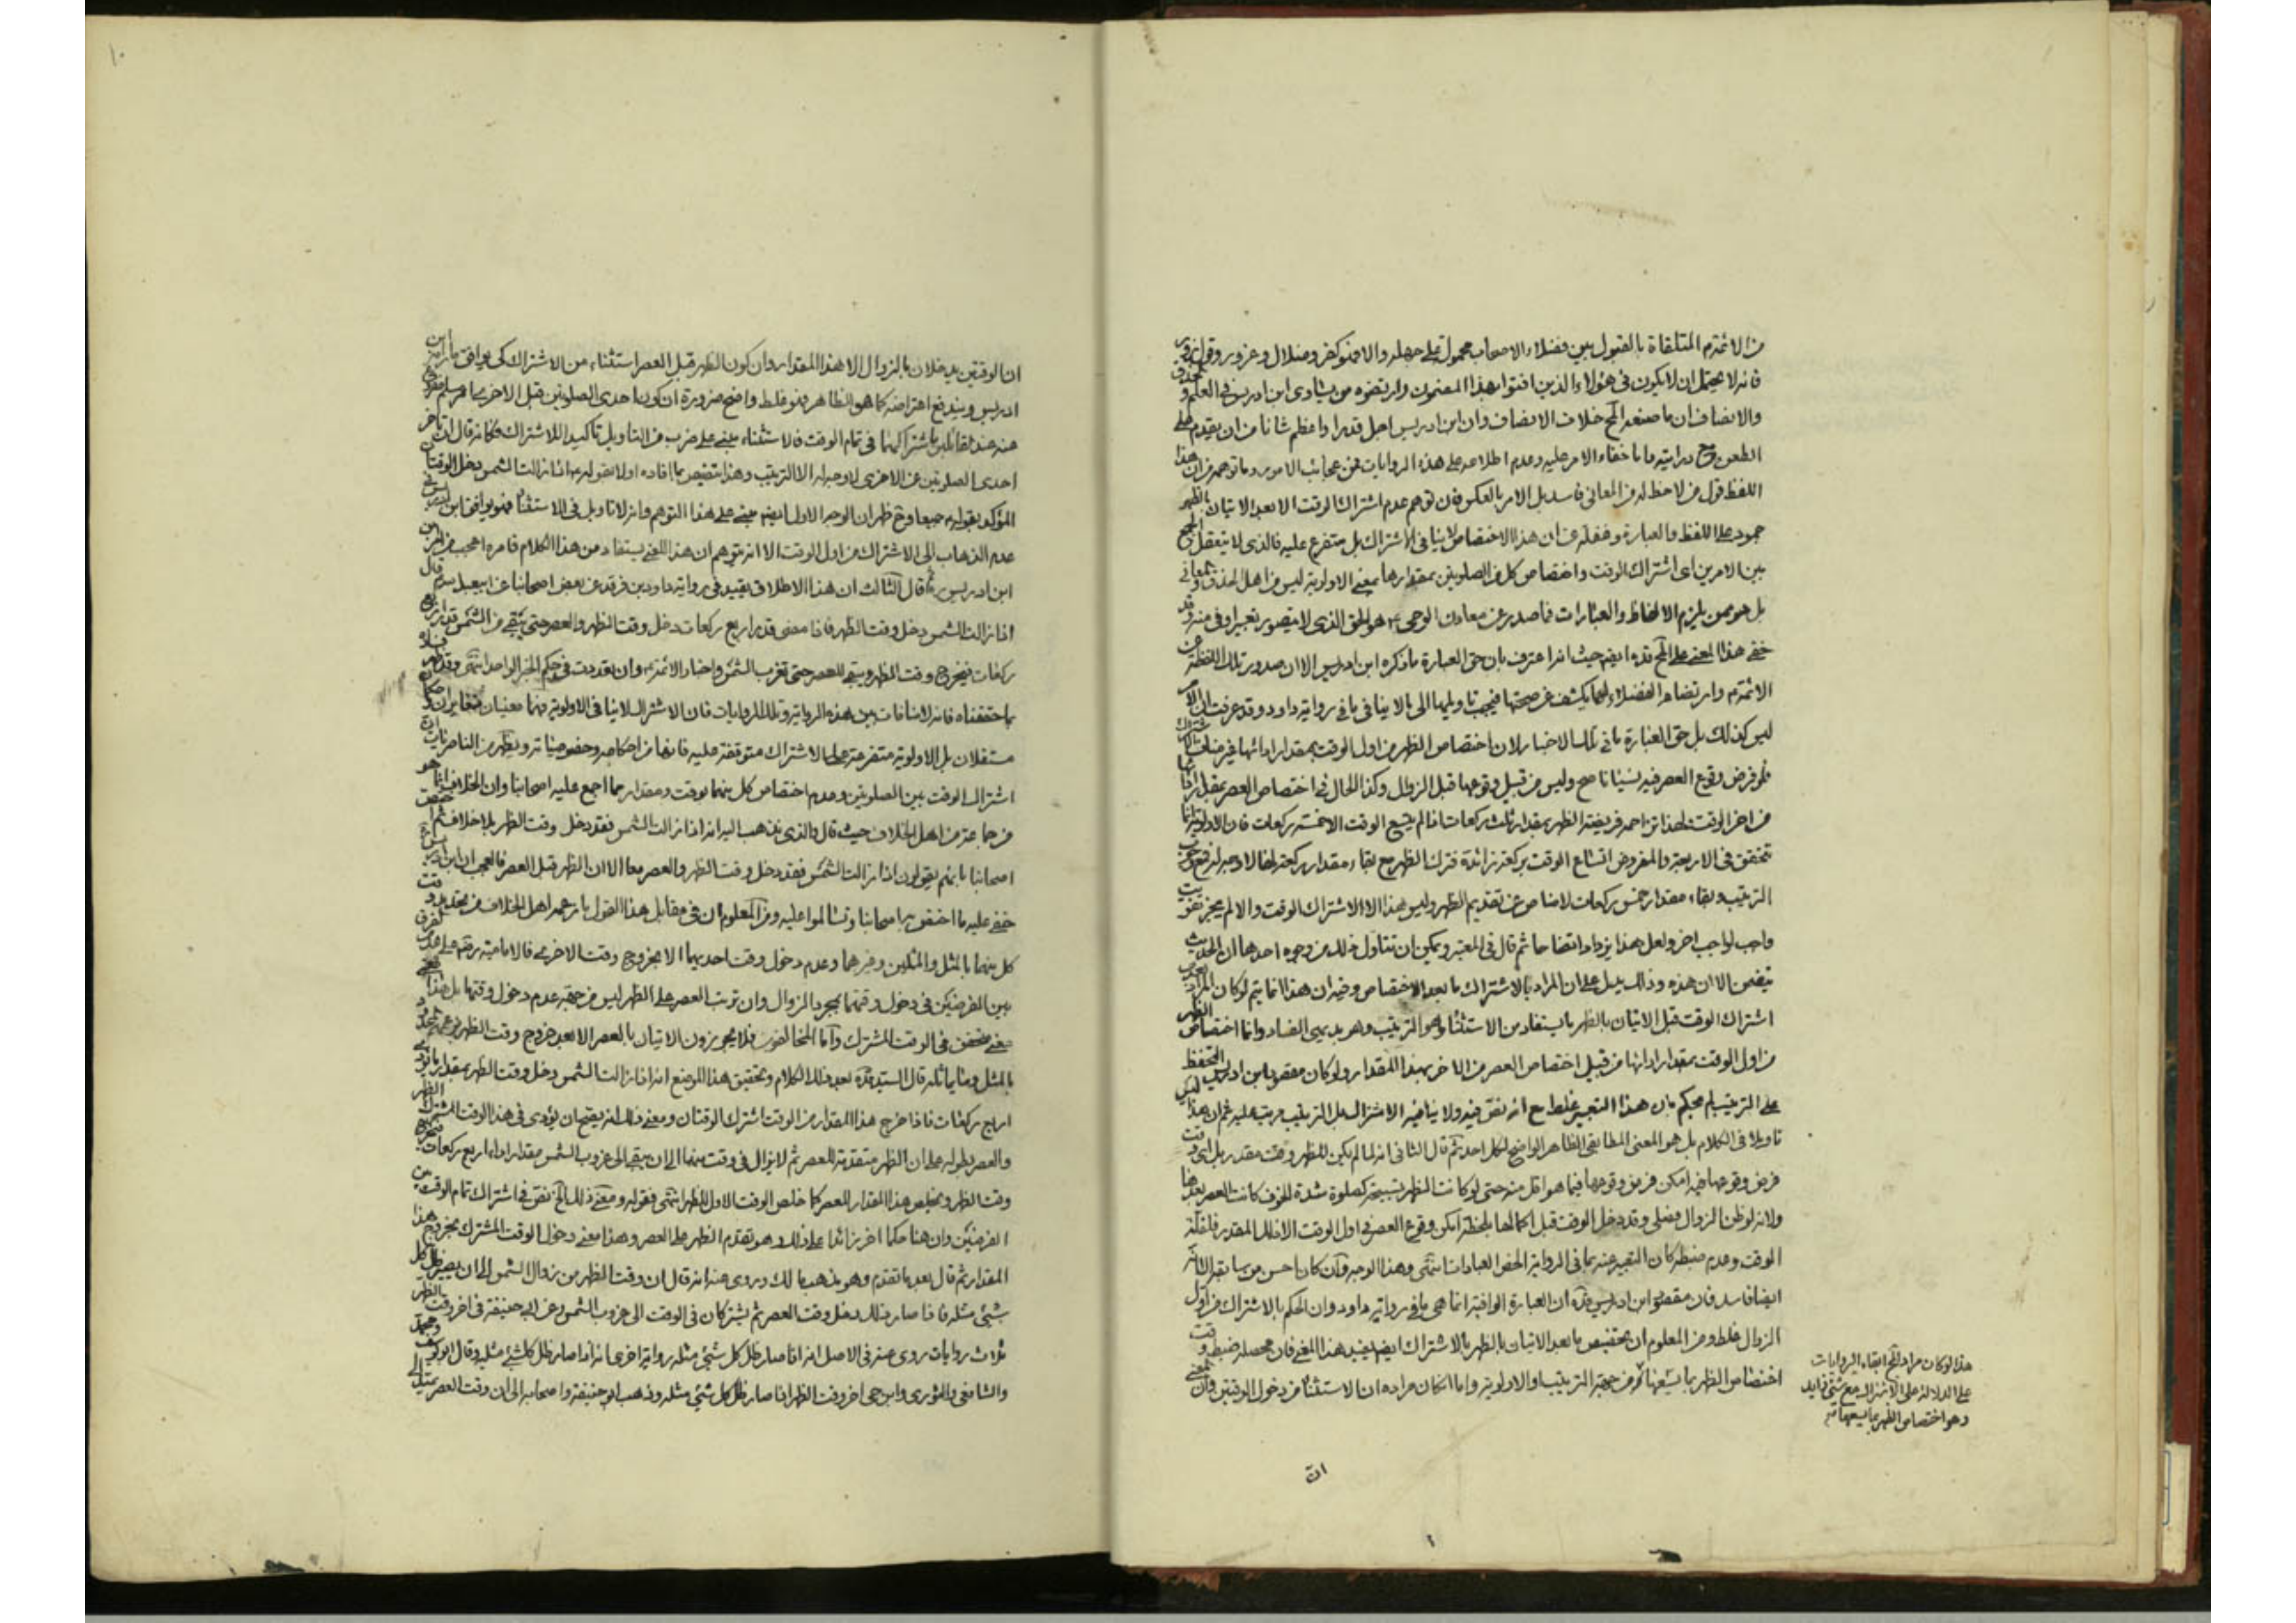 من الائمة ع المتلقاة بالقبول بين فضلاء الاصحاب محمول على جهله والا فهو كفر وضلال وغرور وقول زور
فانه لا يحتمل ان لا يكون فى هؤلاء الذين افتوا بهذا المضمون وارتضوه من يساوى ابن ادريس فى العلم و
والانصاف ان ما صنعه المح خلاف الانصاف وان ابن ادريس اجل قدرا واعظم شانا من ان يقدم على
الطعن درايته ما باخفاء الامر عليه وعدم اطلاعه على هذه الروايات فمن عجائب الامور وما توهمه من ان هذا
اللفظ قول من لاحظ له من المعانى فاسد بل الامر بالعكس فان توهم عدم اشتراك الوقت الا بعد الاتيان بالظهر
جمود على اللفظ والعبارة وغفلة عن ان هذا الاختصاص لا ينافى الاشتراك بل متفرع عليه فالذى لا يتعقل الجمع
بين الامرين اى اشتراك الوقت واختصاص كل من الصلوتين بمقدارها بمعنى الاولوية ليس من اهل الحذق والمعانى
بل هو ممن يلزم الالفاظ والعبارات فما صدر عن معادن الوحى ع هو الحق الذى لا يتصور تعبير اوفى منه وقد
خفى هذا المعنى على المح قده ايضا حيث انه اعترف بان حق العبارة ما ذكره ابن ادريس الا ان صدور تلك اللفظة عن
الائمة ع وارتضاء الفضلاء لها يكشف عن صحتها فيجب تاويلها الى ما لا ينافى ما فى رواية داود وقد عرفت ان الامر
ليس كذلك بل حق العبارة ما فى تلك الاخبار لان اختصاص الظهر من اول الوقت بمقدار ادائها غير مناف للاشتراك
فلو فرض وقوع العصر فيه نسيانا صح وليس من قبيل وقوعها قبل الزوال وكذا الحال فى اختصاص العصر بمقدارها
من اخر الوقت ولهذا تزاحم فريضة الظهر بمقدار ثلث ركعات اذا لم يتسع الوقت الا خمسة ركعات فان الاولوية انما
تتحقق فى الاربعة والمفروض اتساع الوقت بركعة زائدة فترك الظهر مع بقاء مقدار ركعة لها لا وجه له فمع وجوب
الترتيب وبقاء مقدار خمس ركعات لا مناص عن تقديم الظهر وليس هذا الا لاشتراك الوقت والا لم يجز تفويت
واجب لواجب اخر ولعل هذا يزداد اتضاحا ثم قال فى المعتبر ويمكن ان نتاول ذلك من وجوه احدها ان الحديث
تضمن الا ان هذه وذلك يدل على ان المراد بالاشتراك ما بعد الاختصاص وفيه ان هذا انما يتم لو كان المراد
اشتراك الوقت قبل الاتيان بالظهر ما يستفاد من الاستثناء وهو الترتيب وهو بديهى الفساد وانما اختصاص الظهر
من اول الوقت بمقدار ادائها من قبيل اختصاص العصر من الاخر بهذا المقدار ولو كان مقصود ابن ادريس التحفظ
على الترتيب لم يحكم بان هذا التعبير غلط مع انه نص فيه ولا ينافيه الاشتراك بل الترتيب مرتب عليه ثم ان هذا ليس
تاويلا فى الكلام بل هو المعنى المطابقى الظاهر الواضح لكل احد ثم قال الثانى انه لما لم يكن للظهر وقت مقدر بل اى وقت
فرض وقوعها فيه امكن فرض وقوعها فيما هو اقل منه حتى لو كانت الظهر تسبيحة كصلوة شدة الخوف كانت العصر بعدها
ولانه لو ظن الزوال فصلى وقد دخل الوقت قبل اكمالها بلحظة امكن وقوع العصر فى اول الوقت الا ذلك المقدر فلقلة
الوقت وعدم ضبطه كان التعبير عنه بما فى الرواية الخص العبادات انتهى وهذا الوجه وان كان احسن من سابقه الا انه
ايضا فاسد فان مقصود ابن ادريس قده ان العبارة الوافية انما هى ما فى رواية داود وان الحكم بالاشتراك من اول
الزوال غلط ومن المعلوم ان تخصيص ما بعد الاتيان بالظهر بالاشتراك ايضا يفيد هذا المعنى فان محصله ضبط وقت
اختصاص الظهر بما يسعها لا من جهة الترتيب والاولوية واما ان كان مراده ان الاستثناء من دخول الوقتين وان المعنى
هذا لو كان مراد المح ابقاء الروايات
على الدلالة على الاشتراك مع شئ زايد
وهو اختصاص الظهر بما يسعها منه
ان
١٠
ان الوقتين يدخلان بالزوال الا هذا المقدار وان كون الظهر قبل العصر استثناء من الاشتراك كى يوافق ما رامه ابن
ادريس ويندفع اعتراضه كما هو الظاهر فهو غلط واضح ضرورة ان كون احدى الصلوتين قبل الاخرى مما هو مسلم مفروغ
عنه عند القائلين باشتراكهما فى تمام الوقت فالاستثناء مبنى على ضرب من التاويل تاكيدا للاشتراك فكانه قال ان تاخر
احدى الصلوتين عن الاخرى لا وجه له الا الترتيب وهذا تنصيص بما افاده اولا بقوله ع اذا زالت الشمس دخل الوقتان
المؤكد بقوله ع جميعا وح ظهر ان الوجه الاول ايضا مبنى على هذا التوهم وانه لا تاويل فى الاستثناء فهو يوافق ابن ادريس فى
عدم الذهاب الى الاشتراك من اول الوقت الا انه توهم ان هذا المعنى يستفاد من هذا الكلام فامره اعجب من امر ابن
ابن ادريس ره ثم قال الثالث ان هذا الاطلاق مقيد فى رواية داود بن فرقد عن بعض اصحابنا عن ابيعبد الله ع قال
اذا زالت الشمس دخل وقت الظهر فاذا مضى قدر اربع ركعات دخل وقت الظهر والعصر حتى يبقى من الشمس قدر اربع
ركعات فيخرج وقت الظهر ويبقى العصر حتى تغرب الشمس واخبار الائمة ع وان تعددت فى حكم الخبر الواحد انتهى وقد ظهر فساده
بما حققناه فانه لا منافات بين هذه الرواية وتلك الروايات فان الاشتراك لا ينافى الاولوية فهما معنيان متغايران
مستقلان بل الاولوية متفرعة على الاشتراك متوقفة عليه فانها من احكامه وخصوصياته ويظهر من الناصريات ان
اشتراك الوقت بين الصلوتين وعدم اختصاص كل منهما بوقت ومقدار مما اجمع عليه اصحابنا وان الخلاف انما هو
من جماعة من اهل الخلاف حيث قال والذى يذهب اليه انه اذا زالت الشمس فقد دخل وقت الظهر بلا خلاف ثم
اصحابنا بانهم يقولون اذا زالت الشمس فقد دخل وقت الظهر والعصر معا الا ان الظهر قبل العصر فالعجب ان ابن ادريس
خفى عليه ما اختص به اصحابنا وتسالموا عليه ومن المعلوم ان فى مقابل هذا القول ما زعمه اهل الخلاف من تحديد وقت
كل منهما بالمثل والمثلين وغيرهما وعدم دخول وقت احديهما الا بخروج وقت الاخرى فالامامية رضى على عدم الفرق
بين الفرضين فى دخول وقتهما بمجرد الزوال وان ترتب العصر على الظهر ليس من جهة عدم دخول وقتها بل هذا
معنى متحقق فى الوقت المشترك واما المخالفون فلا يجوزون الاتيان بالعصر الا بعد خروج وقت الظهر
بالمثل وما يماثله قال السيد قده بعد ذلك الكلام وتحقيق هذا الموضع انه اذا زالت الشمس دخل وقت الظهر بمقدار ما تؤدى
اربع ركعات فاذا خرج هذا المقدار من الوقت اشترك الوقتان ومعنى ذلك انه يصح ان يؤدى فى هذا الوقت المشترك الظهر
والعصر بطوله على ان الظهر متقدمة للعصر ثم لا يزال فى وقت منهما الى ان يبقى الى غروب الشمس مقدار اداء اربع ركعات فيخرج
وقت الظهر ويخلص هذا المقدار للعصر كما خلص الوقت الاول للظهر انتهى فقوله ومعنى ذلك الخ نص فى اشتراك تمام الوقت بين
الفرضين وان هنا حكما اخر زائدا على ذلك وهو تقدم الظهر على العصر وهذا معنى دخول الوقت المشترك بخروج هذا
المقدار ثم قال بعد ما تقدم وهو مذهب مالك وروى عنه انه قال ان وقت الظهر من زوال الشمس الى ان يصير ظل كل
شئ مثله فاذا صار ذلك دخل وقت العصر ثم يشتركان فى الوقت الى غروب الشمس وعن ابى حنيفة فى اخر وقت الظهر
ثلاث روايات روى عنه فى الاصل انه اذا صار ظل كل شئ مثله رواية اخرى انه اذا صار ظل كل شئ مثليه وقال ابو يوسف ومحمد
والشافعى والثورى وابن حى اخر وقت الظهر اذا صار ظل كل شئ مثله وذهب ابو حنيفة واصحابه الى ان وقت العصر يمتد الى